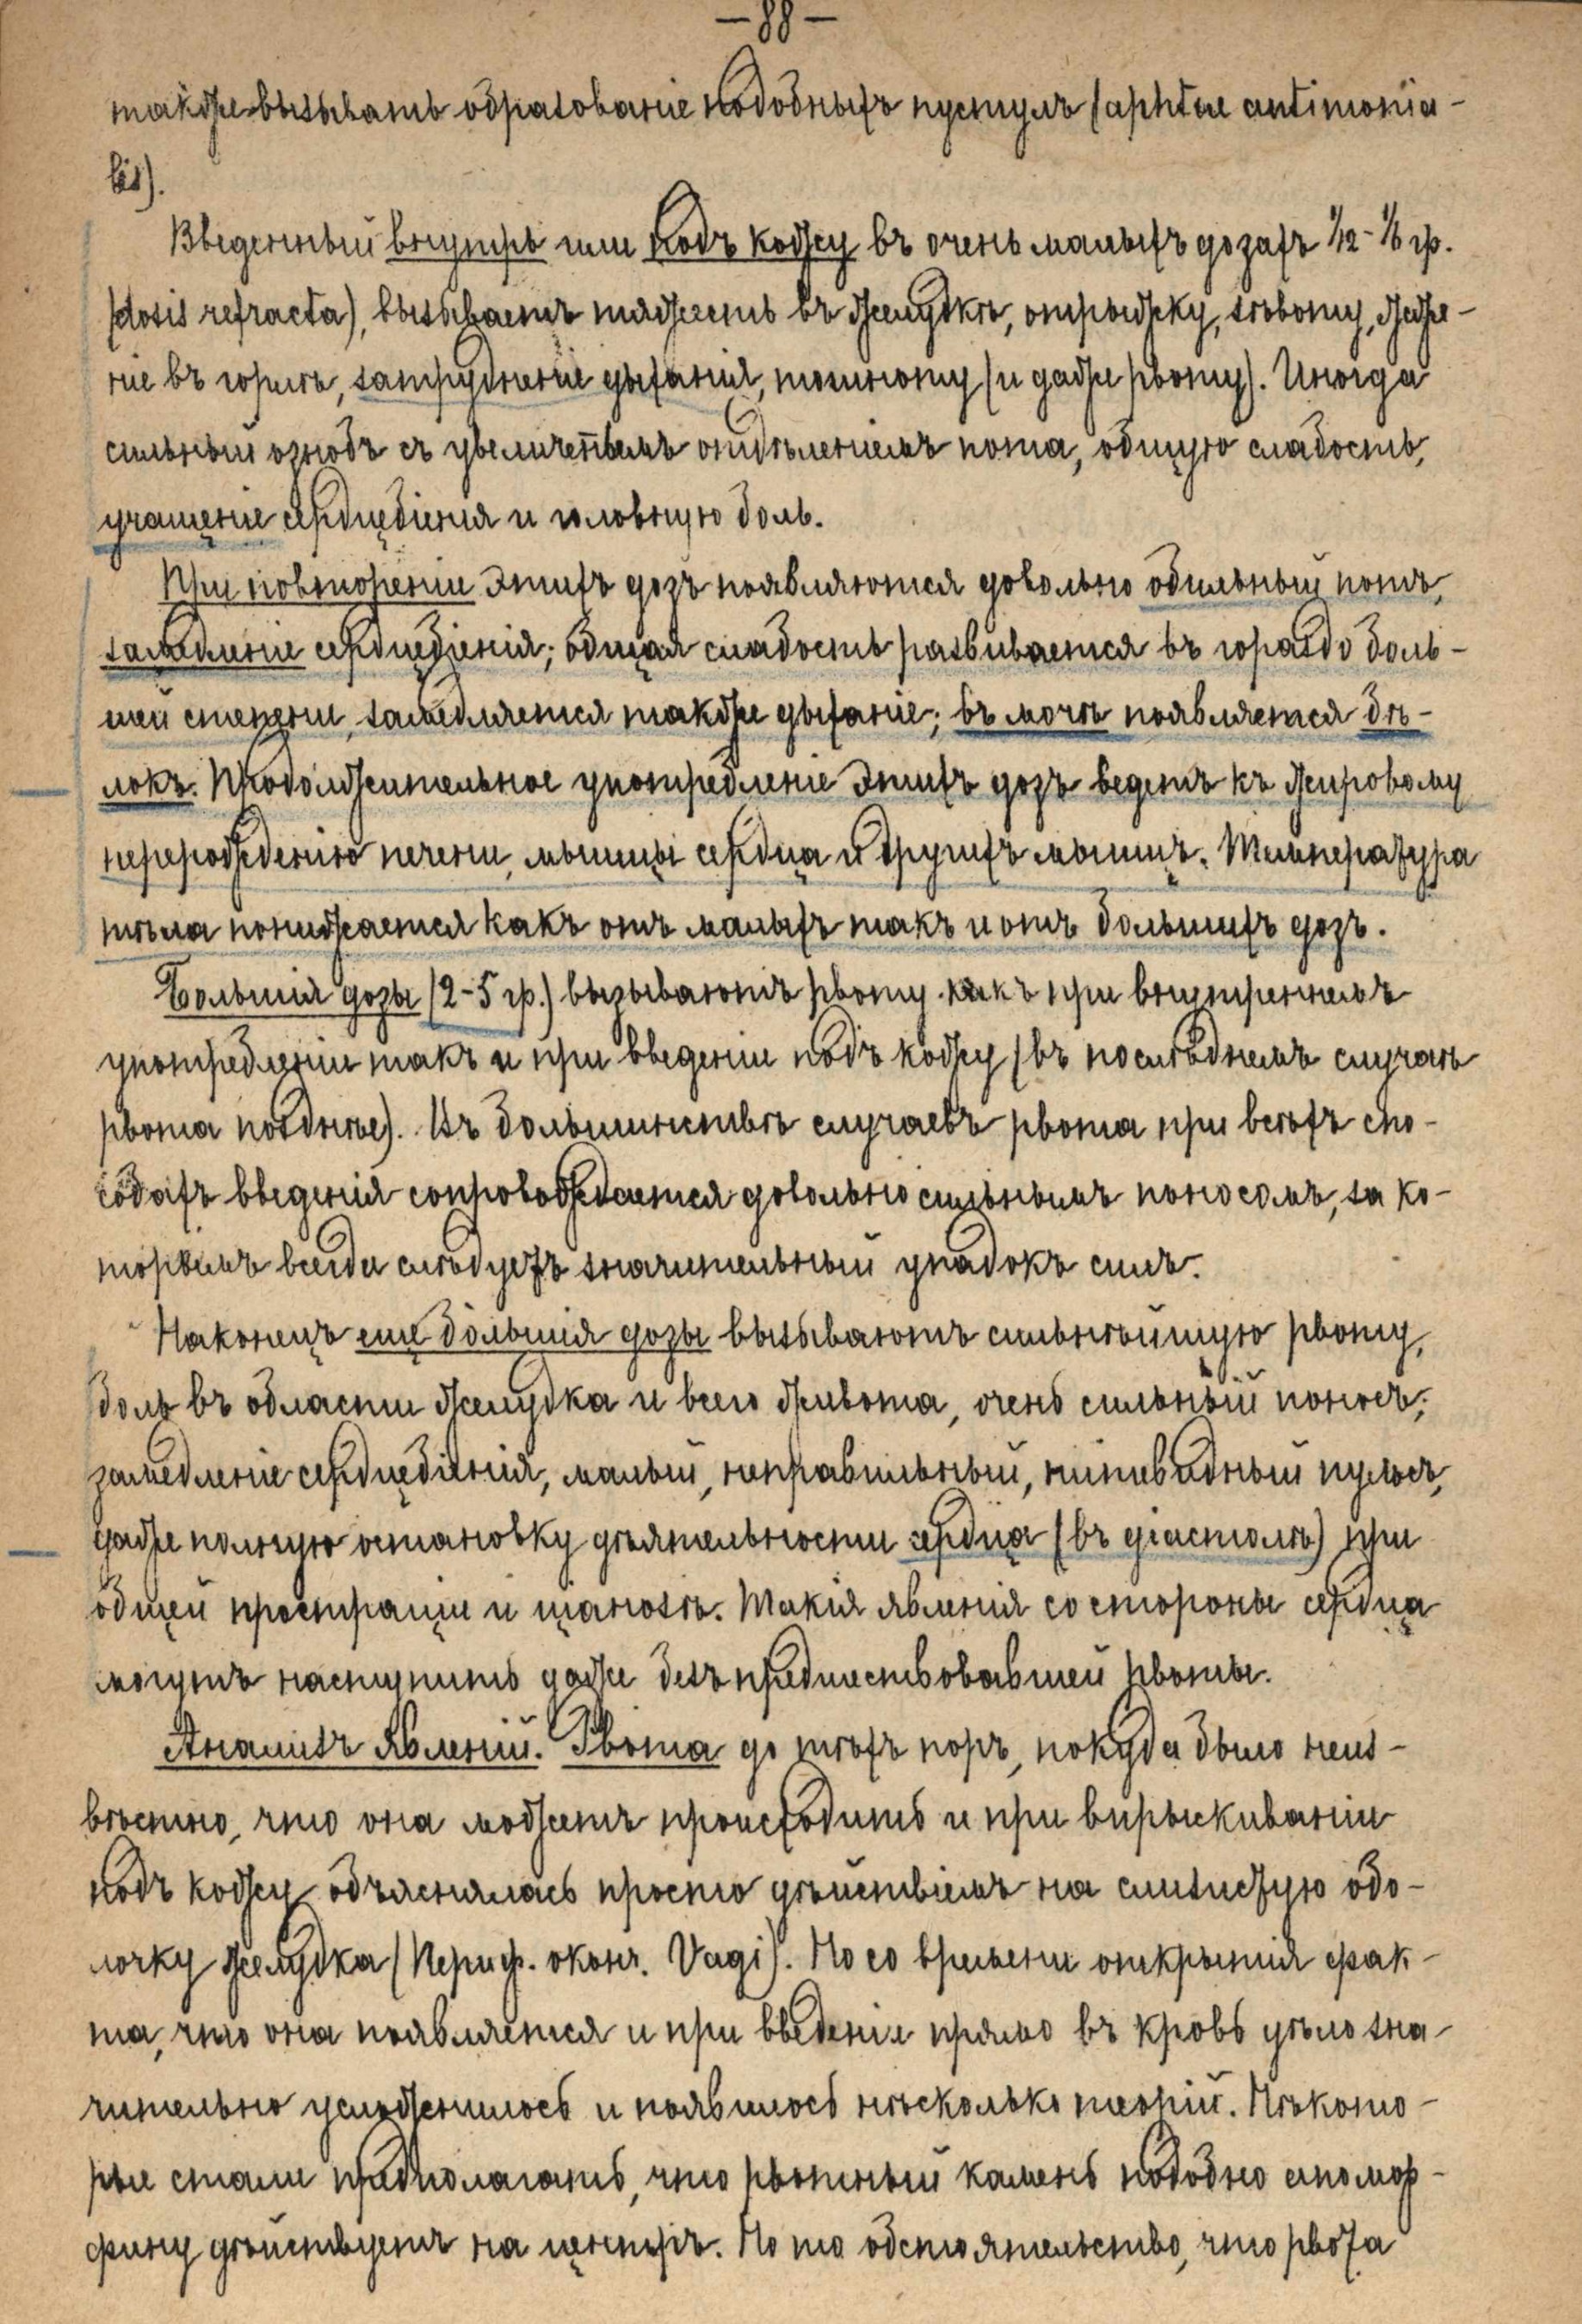 —88—
также вызывать образованіе подобныхъ пустулъ (aphtae antimonia-
lis).
Введенный внутрь или подъ кожу въ очень малыхъ дозахъ 1/12-1/6 гр.
(dosis refracta), вызываетъ тяжесть въ желудкѣ, отрыжку, зѣвоту, жже-
ніе въ горлѣ, затрудненіе дыханія, тошноту (и даже рвоту). Иногда
сильный ознобъ съ увеличеннымъ отдѣленіемъ пота, общую слабость,
учащеніе сердцебіенія и головную боль.
При повтореніи этихъ дозъ появляются довольно обильный потъ,
замедленіе сердцебіенія; общая слабость развивается въ гораздо боль-
шей степени, замедляется также дыханіе; въ мочѣ появляется бѣ-
локъ. Продолжительное употребленіе этихъ дозъ ведетъ къ жировому
перерожденію печени, мышцы сердца и другихъ мышцъ. Температура
тѣла понижается какъ отъ малыхъ такъ и отъ большихъ дозъ.
Большія дозы (2-5 гр.) вызываютъ рвоту какъ при внутреннемъ
употребленіи такъ и при введеніи подъ кожу (въ послѣднемъ случаѣ
рвота позднѣе). Въ большинствѣ случаевъ рвота при всѣхъ спо-
собахъ введенія сопровождается довольно сильнымъ поносомъ, за ко-
торымъ всегда слѣдуетъ значительный упадокъ силъ.
Наконецъ ещё бóльшія дозы вызываютъ сильнѣйшую рвоту,
боль въ области желудка и всего живота, очень сильный поносъ;
замедленіе сердцебіенія, малый, неправильный, нитевидный пульсъ,
даже полную остановку дѣятельности сердца (въ діастолѣ) при
общей прострации и ціанозѣ. Такія явленія со стороны сердца
могутъ наступить даже безъ предшествовавшей рвоты.
Анализъ явленій. Рвота до тѣхъ поръ, покуда было неиз-
вѣстно, что она можетъ происходить и при впрыскиваніи
подъ кожу объяснялась просто дѣйствіемъ на слизистую обо-
лочку желудка (Периф. оконч. Vagi). Но со времени открытія фак-
та, что она появляется и при введеніи прямо въ кровь дѣло зна-
чительно усложнилось и появилось нѣсколько теорій. Нѣкото-
рые стали предполагать, что рвотный камень подобно апомор-
фину дѣйствуетъ на центръ. Но то обстоятельство, что рвота